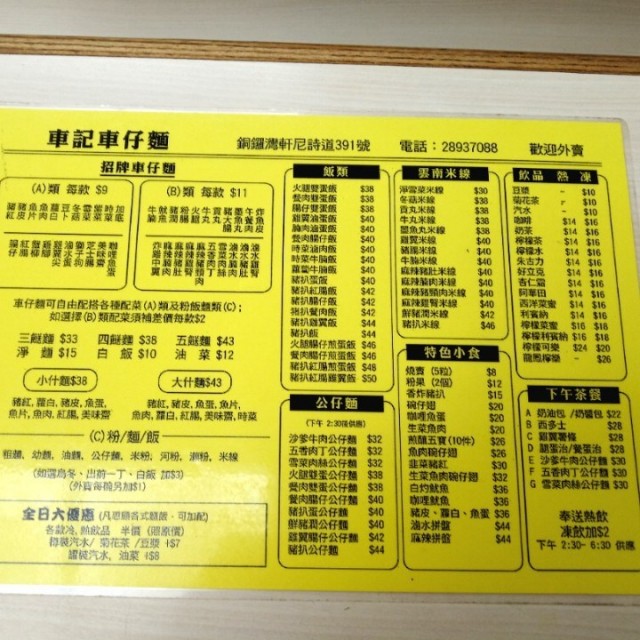 車記車仔麵 銅鑼灣軒尼詩道391號 電話：28937088 歡迎外賣
招牌車仔麵
(A)類 每款 $9
(B)類 每款 $11
車仔麵可自由配搭各種配菜(A)類及粉飯麵類(C)；
如選擇(B)類配菜須補差價每款$2
三餸麵 $33 四餸麵 $38 五餸麵 $43
淨麵 $15 白飯 $10 油菜 $12
小什麵$38
豬紅，蘿白，豬皮，魚蛋，
魚片，魚肉，紅腸，美味齋
大什麵$43
豬紅，豬皮，魚蛋，魚片，
魚肉，蘿白，紅腸，美味齋，時菜
(C)粉/麵/飯
粗麵，幼麵，油麵，公仔麵，米粉，河粉，瀨粉，米線
(如選烏冬、出前一丁、白飯 加$3)
(外賣每個另加$1)
全日大優惠 (凡惠顧各式麵飯，可加配)
各款冷,熱飲品 半價 (跟原價)
樽裝汽水/ 菊花茶 /豆漿 +$7
罐裝汽水, 油菜 +$8
飯類
火腿雙蛋飯 $38
餐肉雙蛋飯 $38
腸仔雙蛋飯 $38
雞翼滷蛋飯 $40
腩肉滷蛋飯 $40
餐肉腸仔飯 $40
時菜滷肉飯 $40
時菜牛腩飯 $40
蘿蔔牛腩飯 $40
豬扒蛋飯 $40
豬扒紅腸飯 $42
豬扒腸仔飯 $42
豬扒餐肉飯 $42
豬扒雞翼飯 $44
豬扒飯 $44
火腿腸仔煎蛋飯 $46
餐肉腸仔煎蛋飯 $46
豬扒紅腸煎蛋飯 $48
豬扒紅腸雞翼飯 $50
公仔麵
(下午 2:30後供應)
沙爹牛肉公仔麵 $32
五香肉丁公仔麵 $32
雪菜肉絲公仔麵 $32
火腿雙蛋公仔麵 $32
餐肉雙蛋公仔麵 $32
餐肉腸仔公仔麵 $34
豬扒蛋公仔麵 $34
鮮豬潤公仔麵 $44
雞翼腸仔公仔麵 $44
豬扒公仔麵 $44
雲南米線
淨雪菜米線 $30
冬菇米線 $38
貢丸米線 $38
牛丸米線 $38
墨魚丸米線 $38
雞翼米線 $40
豬𦟌米線 $40
牛腩米線 $40
麻辣豬肚米線 $40
麻辣腩肉米線 $40
麻辣豬頸肉米線 $40
麻辣雞腎米線 $40
鮮豬潤米線 $45
豬扒米線 $46
特色小食
燒賣 (5粒) $8
粉果 (2個) $12
香炸豬扒 $15
碗仔翅 $20
咖喱魚蛋 $20
生菜魚肉 $20
煎釀五寶 (10件) $20
魚肉碗仔翅 $20
韭菜豬紅 $30
生菜魚肉碗仔翅 $30
白灼魷魚 $36
咖喱魷魚 $36
豬皮、蘿白、魚蛋 $36
滷水拼盤 $44
麻辣拼盤 $44
飲品 熱 凍
豆漿 - $10
菊花茶 - $10
汽水 - $10
咖啡 $14 $16
奶茶 $14 $16
檸檬茶 $14 $16
檸檬水 $14 $16
朱古力 $14 $16
好立克 $14 $16
杏仁霜 $14 $16
阿華田 $14 $16
西洋菜蜜 $14 $16
利賓納 $14 $16
檸檬菜蜜 $16 $18
檸檬利賓納 $16 $18
檸檬可樂 $24 $20
龍鳳檸樂 - $20
下午茶餐
A 奶油包 /奶醬包 $22
B 西多士 $28
C 雞翼薯條 $28
D 腿蛋治/餐蛋治 $28
E 沙爹牛肉公仔麵 $30
F 五香肉丁公仔麵 $30
G 雪菜肉絲公仔麵 $30
奉送熱飲
凍飲加$2
下午 2:30- 6:30 供應